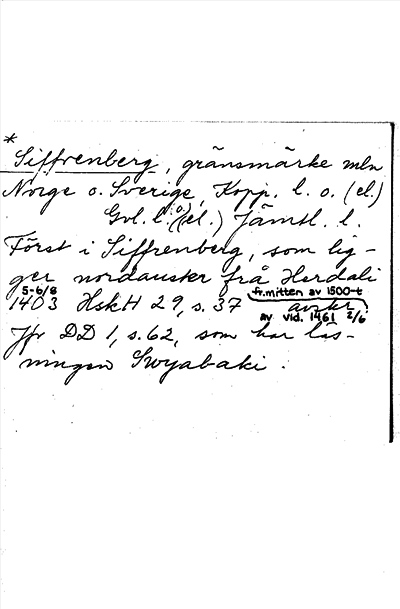 *
Siffrenberg, gränsmärke mln
Norge o. Sverige, Kopp. l. o. (el.)
Gvl. l. o. (el.) Jämtl. l.
Först i Siffrenberg, som lig-
ger nordauster frå Herdali
5-6/8 fr. mitten av 1500-t
1403 HskH 29, s. 37 avskr.
av vid. 1461 2/6
Jfr DD 1, s. 62, som har läs-
ningen Swyabaki.